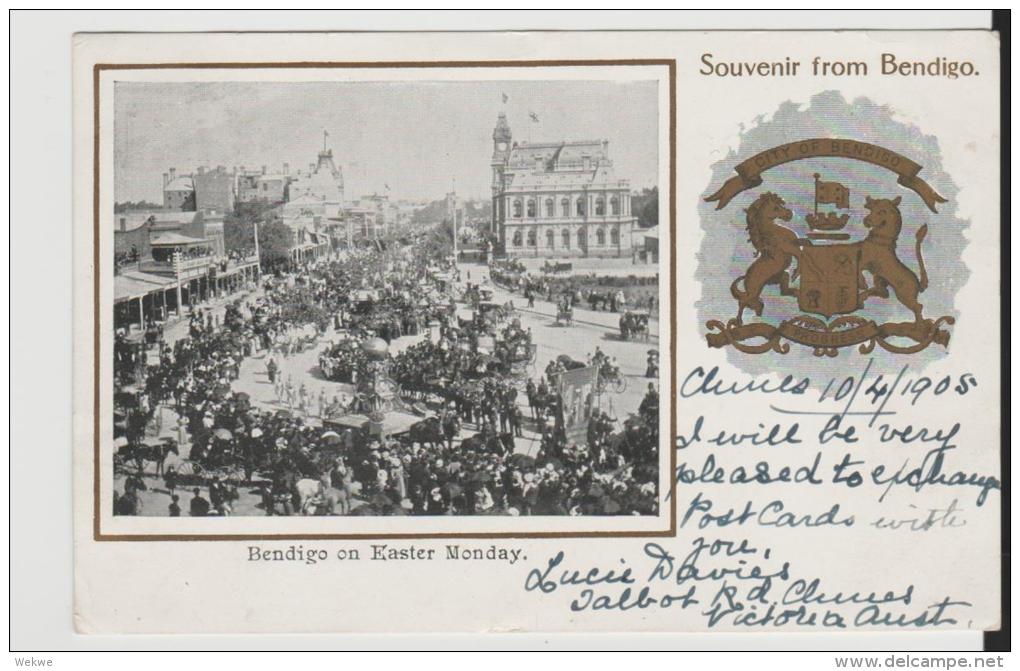 Souvenir from Bendigo.
CITY OF BENDIGO
PROGRESS
Clunes 10/4/1905
I will be very
pleased to exchange
Post Cards with
you,
Bendigo on Easter Monday.
Lucie Davies
Talbot Rd, Clunes
Victoria Aust.
Wekwe
www.delcampe.net